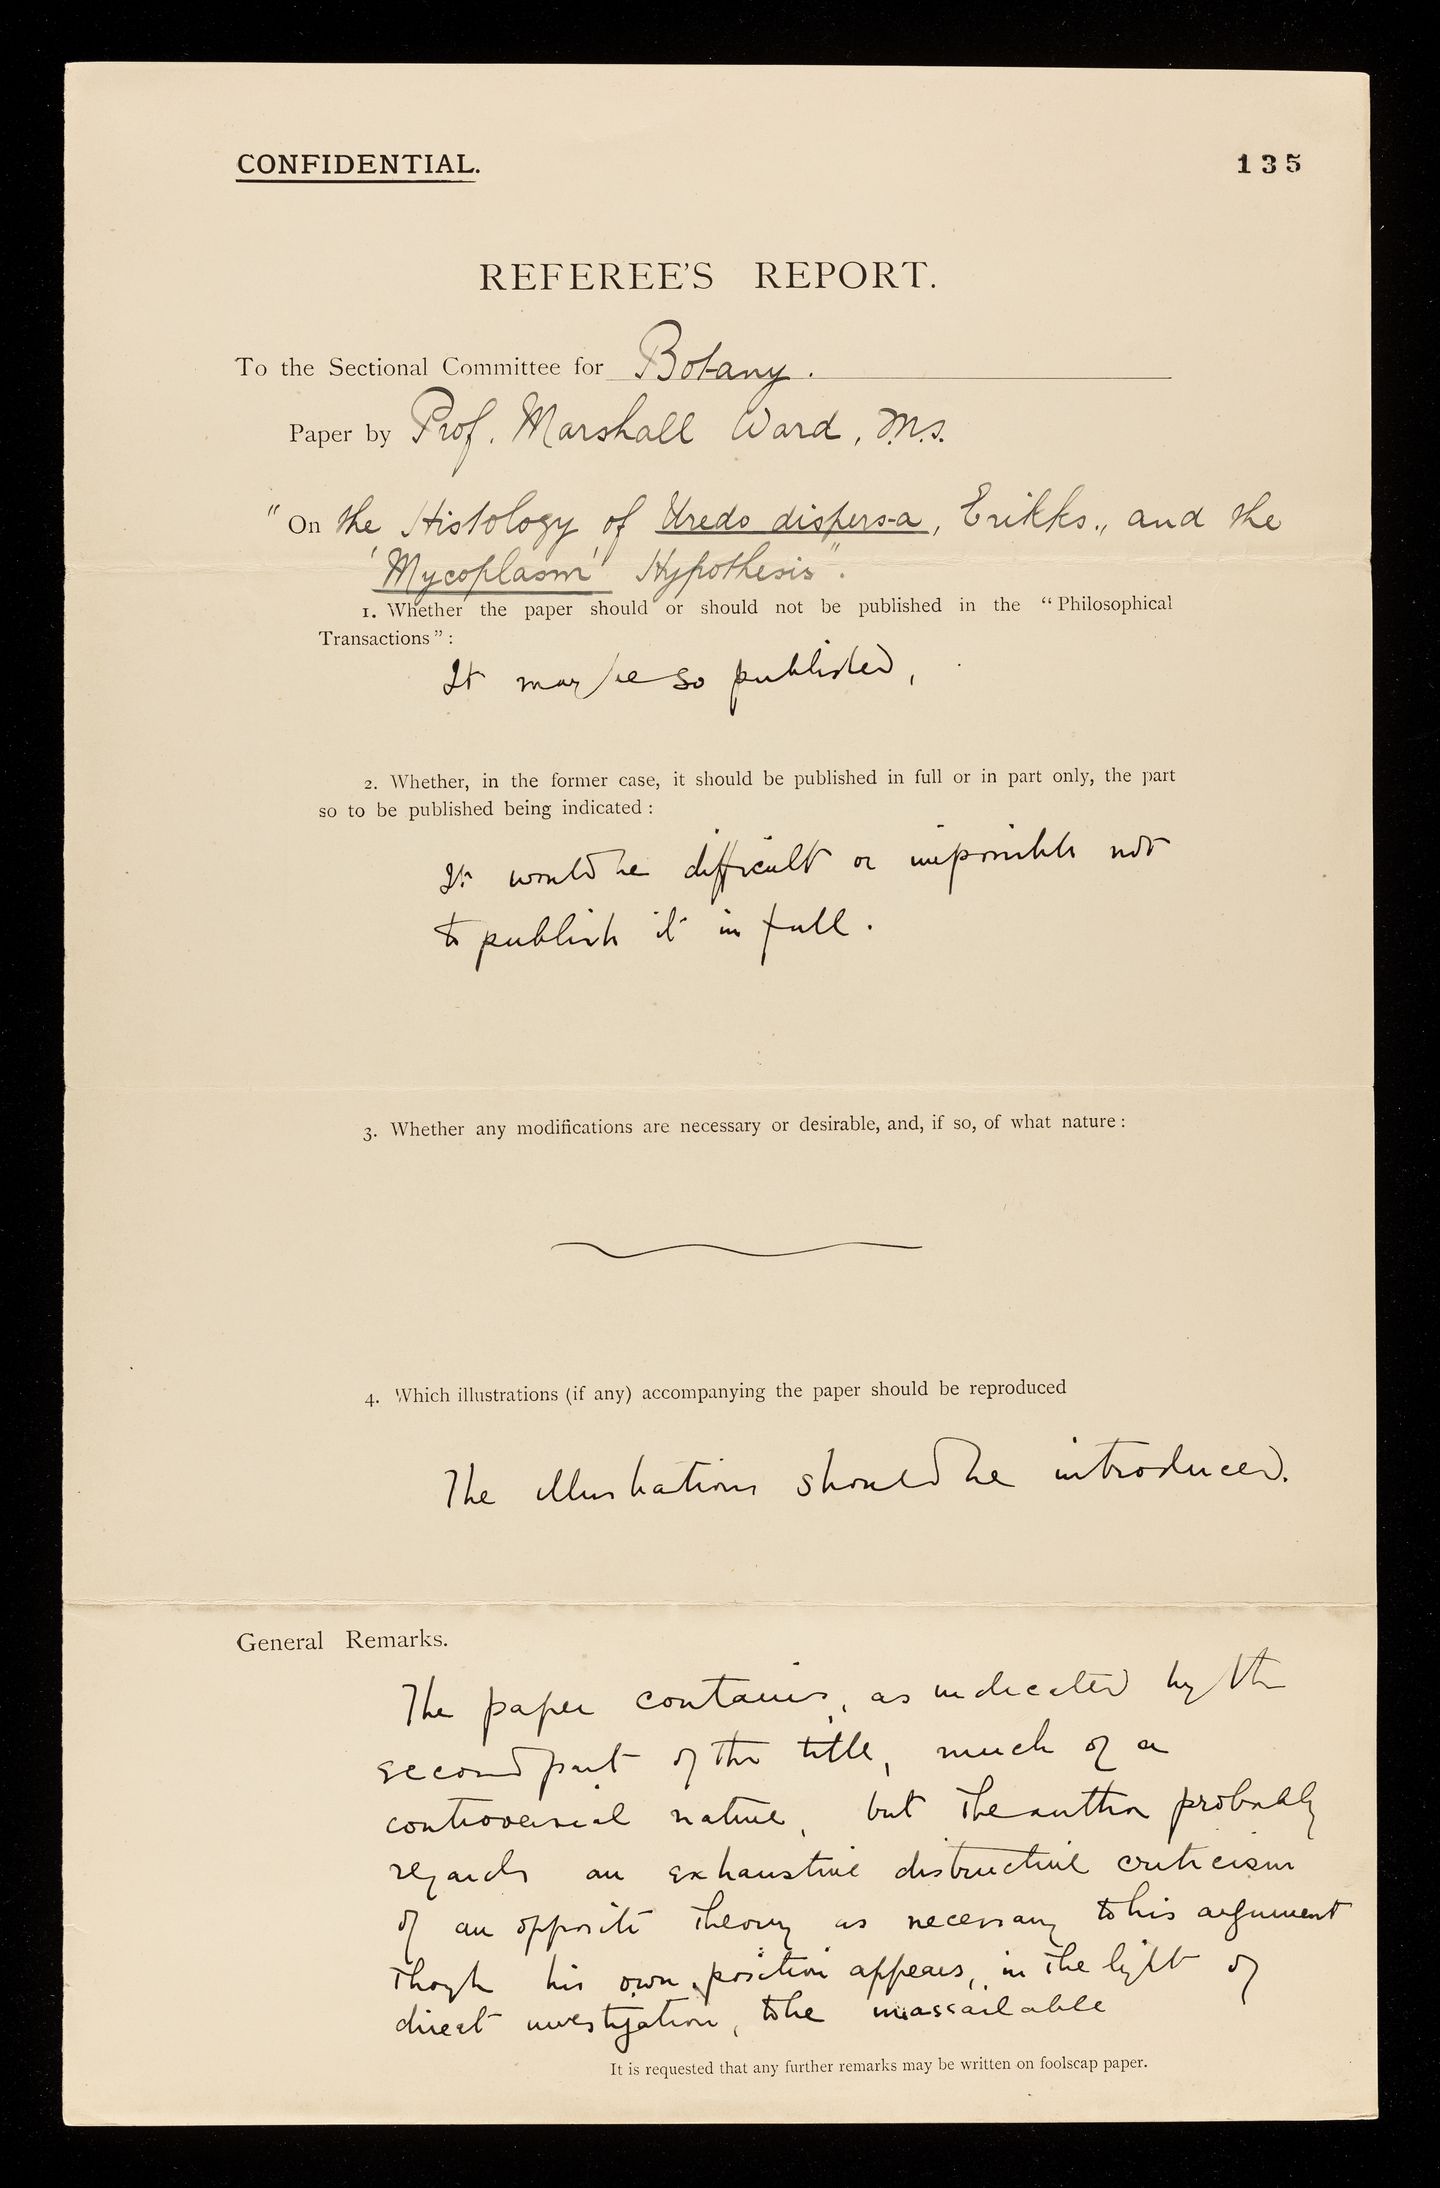 CONFIDENTIAL.
135
REFEREE'S REPORT.
To the Sectional Committee for Botany.
Paper by Prof. Marshall Ward,
"On the Histology of Uredo dispersa, Erikks., and the
'Mycoplasm' Hypothesis".
1. Whether the paper should or should not be published in the "Philosophical
Transactions":
It may be so published,
2. Whether, in the former case, it should be published in full or in part only, the part
so to be published being indicated:
It would be difficult or impossible not
to publish it in full.
3. Whether any modifications are necessary or desirable, and, if so, of what nature:
4. Which illustrations (if any) accompanying the paper should be reproduced
The illustrations should be introduced.
General Remarks.
The paper contains, as indicated by the
second part of the title, much of a
controversial nature, but the author probably
regards an exhaustive destructive criticism
of an opposite theory as necessary to his argument
though his own position appears, in the light of
direct investigation, to be unassailable
It is requested that any further remarks may be written on foolscap paper.